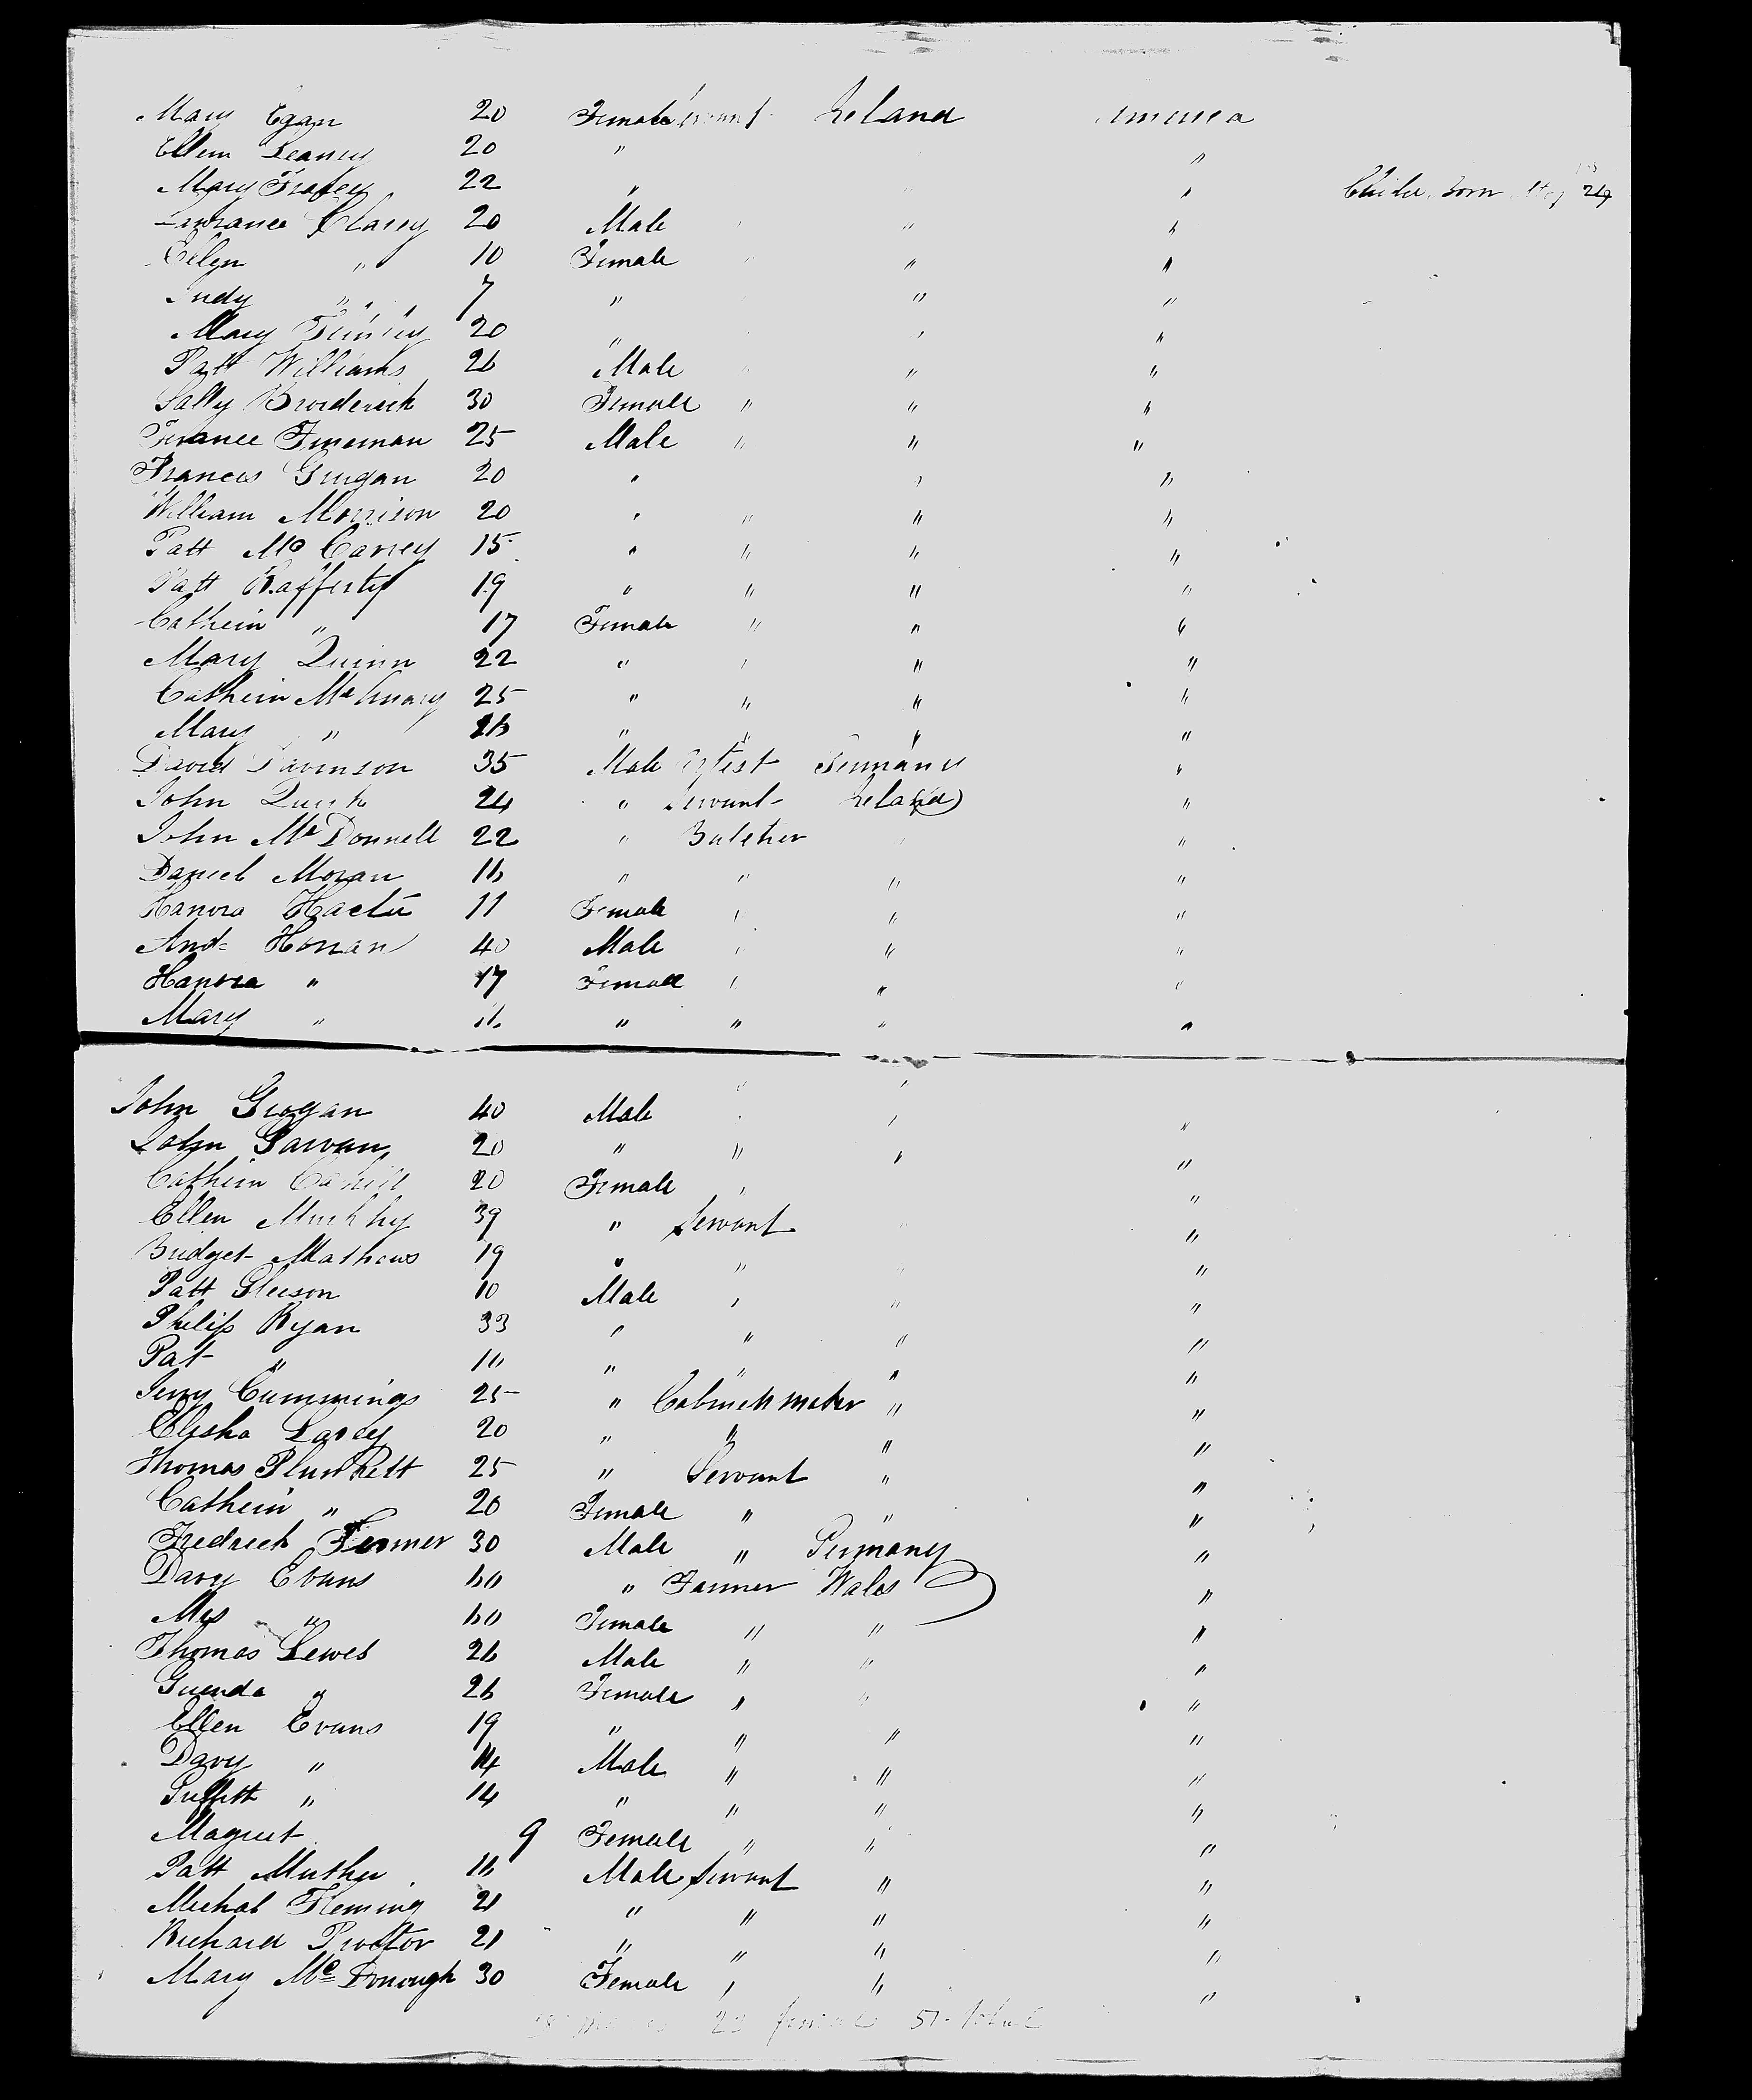 Mary Egan 20 Female Servant Ireland America
Ellen Leaney 20 " "
Mary 22 " " Born May 24
Clarey 20 Male " "
Ellen " 10 Female " "
Judy " 7 " " "
Mary 20 " " "
Patt Williams 26 Male " "
Sally Broiderick 30 Female " " "
Freeman 25 Male " " "
Francis Grugan 20 " " "
William Morrison 20 " " " "
Patt Mc Carrey 15 " " " "
Patt Rafferty 19 " " " "
Cathein " 17 Female " " "
Mary Quinn 22 " " " "
Cathein Mc 25 " " " "
Mary " 26 " " " "
David Davinson 35 Male Artist Germany "
John Quirk 24 " Servant Ireland "
John Mc Donnell 22 " Butcher "
Daniel Moran 16 " " " "
Hanora 11 Female " " "
And= Honan 40 Male " " "
Hanora " 17 Female " " "
Mary " 16 " " " "
John Grogan 40 Male " "
John Garvan 20 " " " "
Cathein 20 Female " "
Ellen 39 " Servant "
Bridget Mathews 19 " " "
Patt Gleeson 10 Male " " "
Philip Ryan 33 " " " "
Pat " 10 " " " "
Jerry Cummings 25 " Cabinett maker " "
Elisha Lacey 20 " " " "
Thomas Plunkett 25 " Servant " "
Cathein " 20 Female " " "
Fredrick 30 Male " Germany "
Davy Evans 60 " Farmer Wales "
Mrs " 60 Female " " "
Thomas Lewes 26 Male " " "
Guenda " 26 Female " " "
Ellen Evans 19 " " " "
Davy " 14 Male " " "
" 14 " " " "
Magret 9 Female " " "
Patt 16 Male Servant " "
Michal Fleming 21 " " " "
Richard Proctor 21 " " " "
Mary Mc Donough 30 Female " " "
23 female 51 total